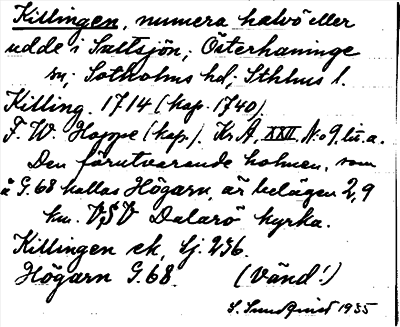 Killingen, numera halvö eller
udde i Saltsjön; Österhaninge
sn; Sotholms hd; Sthlms l.
Killing. 1714 (kop. 1740)
F. W. Hoppe (kop.). Kr. A. XXII, No 9. lit. a.
Den förutvarande holmen, som
å G. 68 kallas Högarn, är belägen 2,9
km. VSV Dalarö kyrka.
Killingen ek. Sj. 236.
Högarn G. 68. (Vänd!)
S. Sundquist 1935